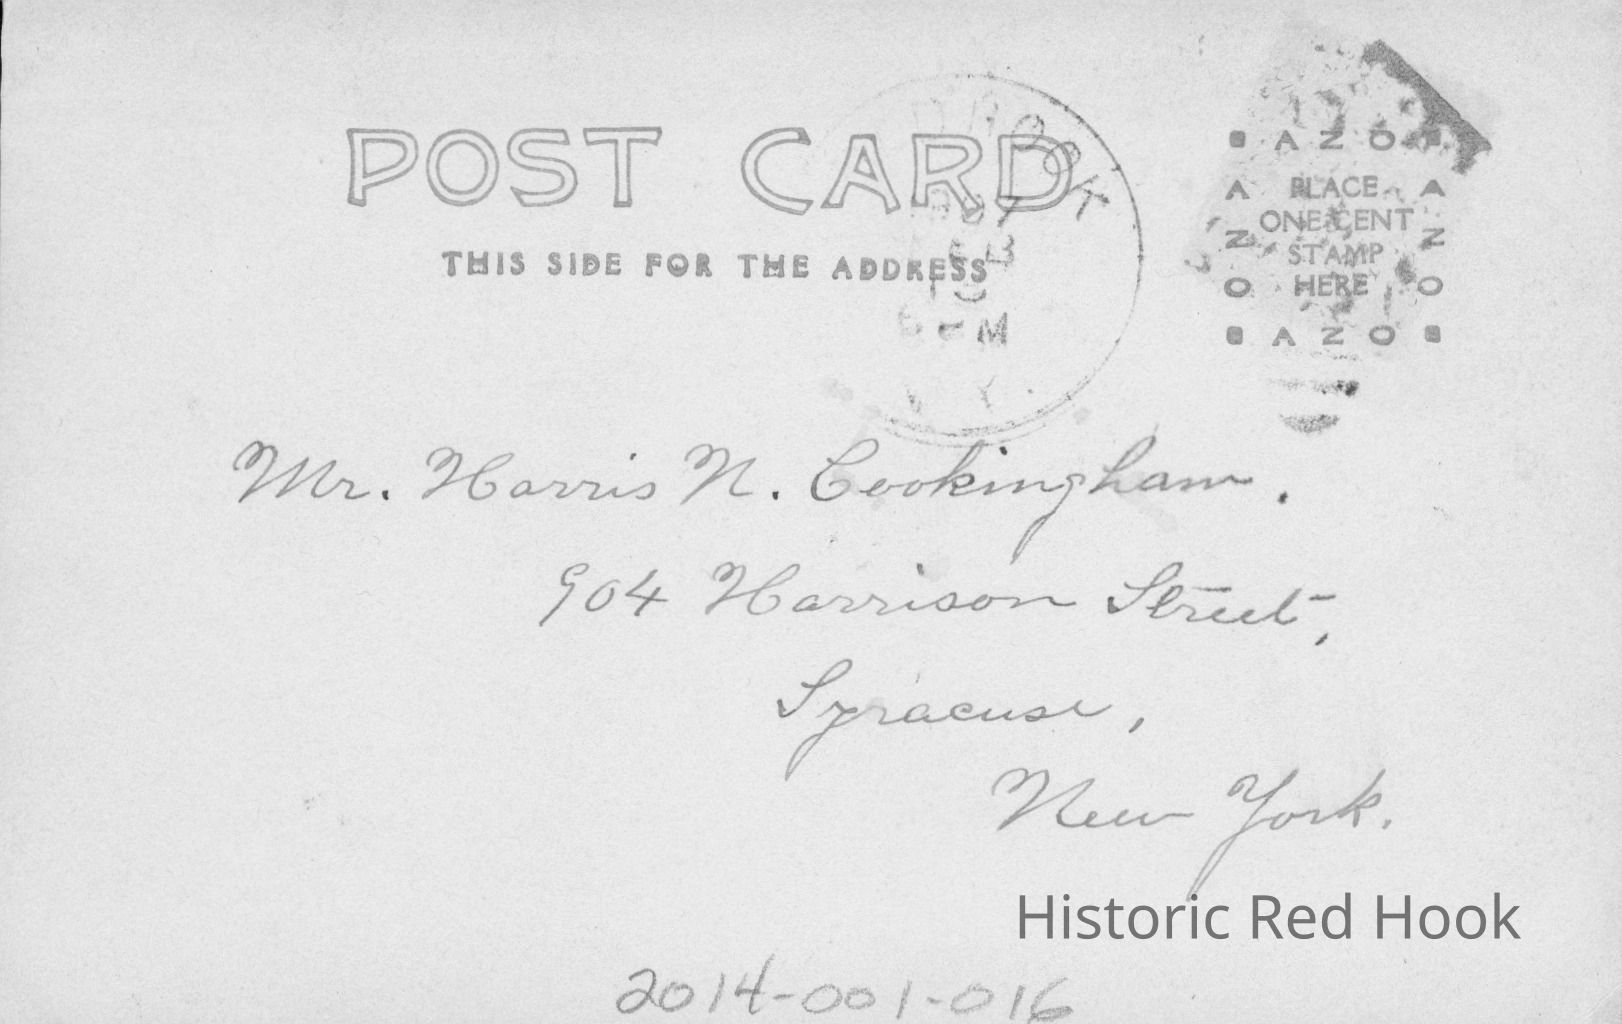 POST CARD
THIS SIDE FOR THE ADDRESS
HOOK
M
N. Y.
AZO
PLACE
ONE CENT
STAMP
HERE
AZO
AZO
AZO
Mr. Harris N. Cookingham.
904 Harrison Street,
Syracuse,
New York.
Historic Red Hook
2014-001-016